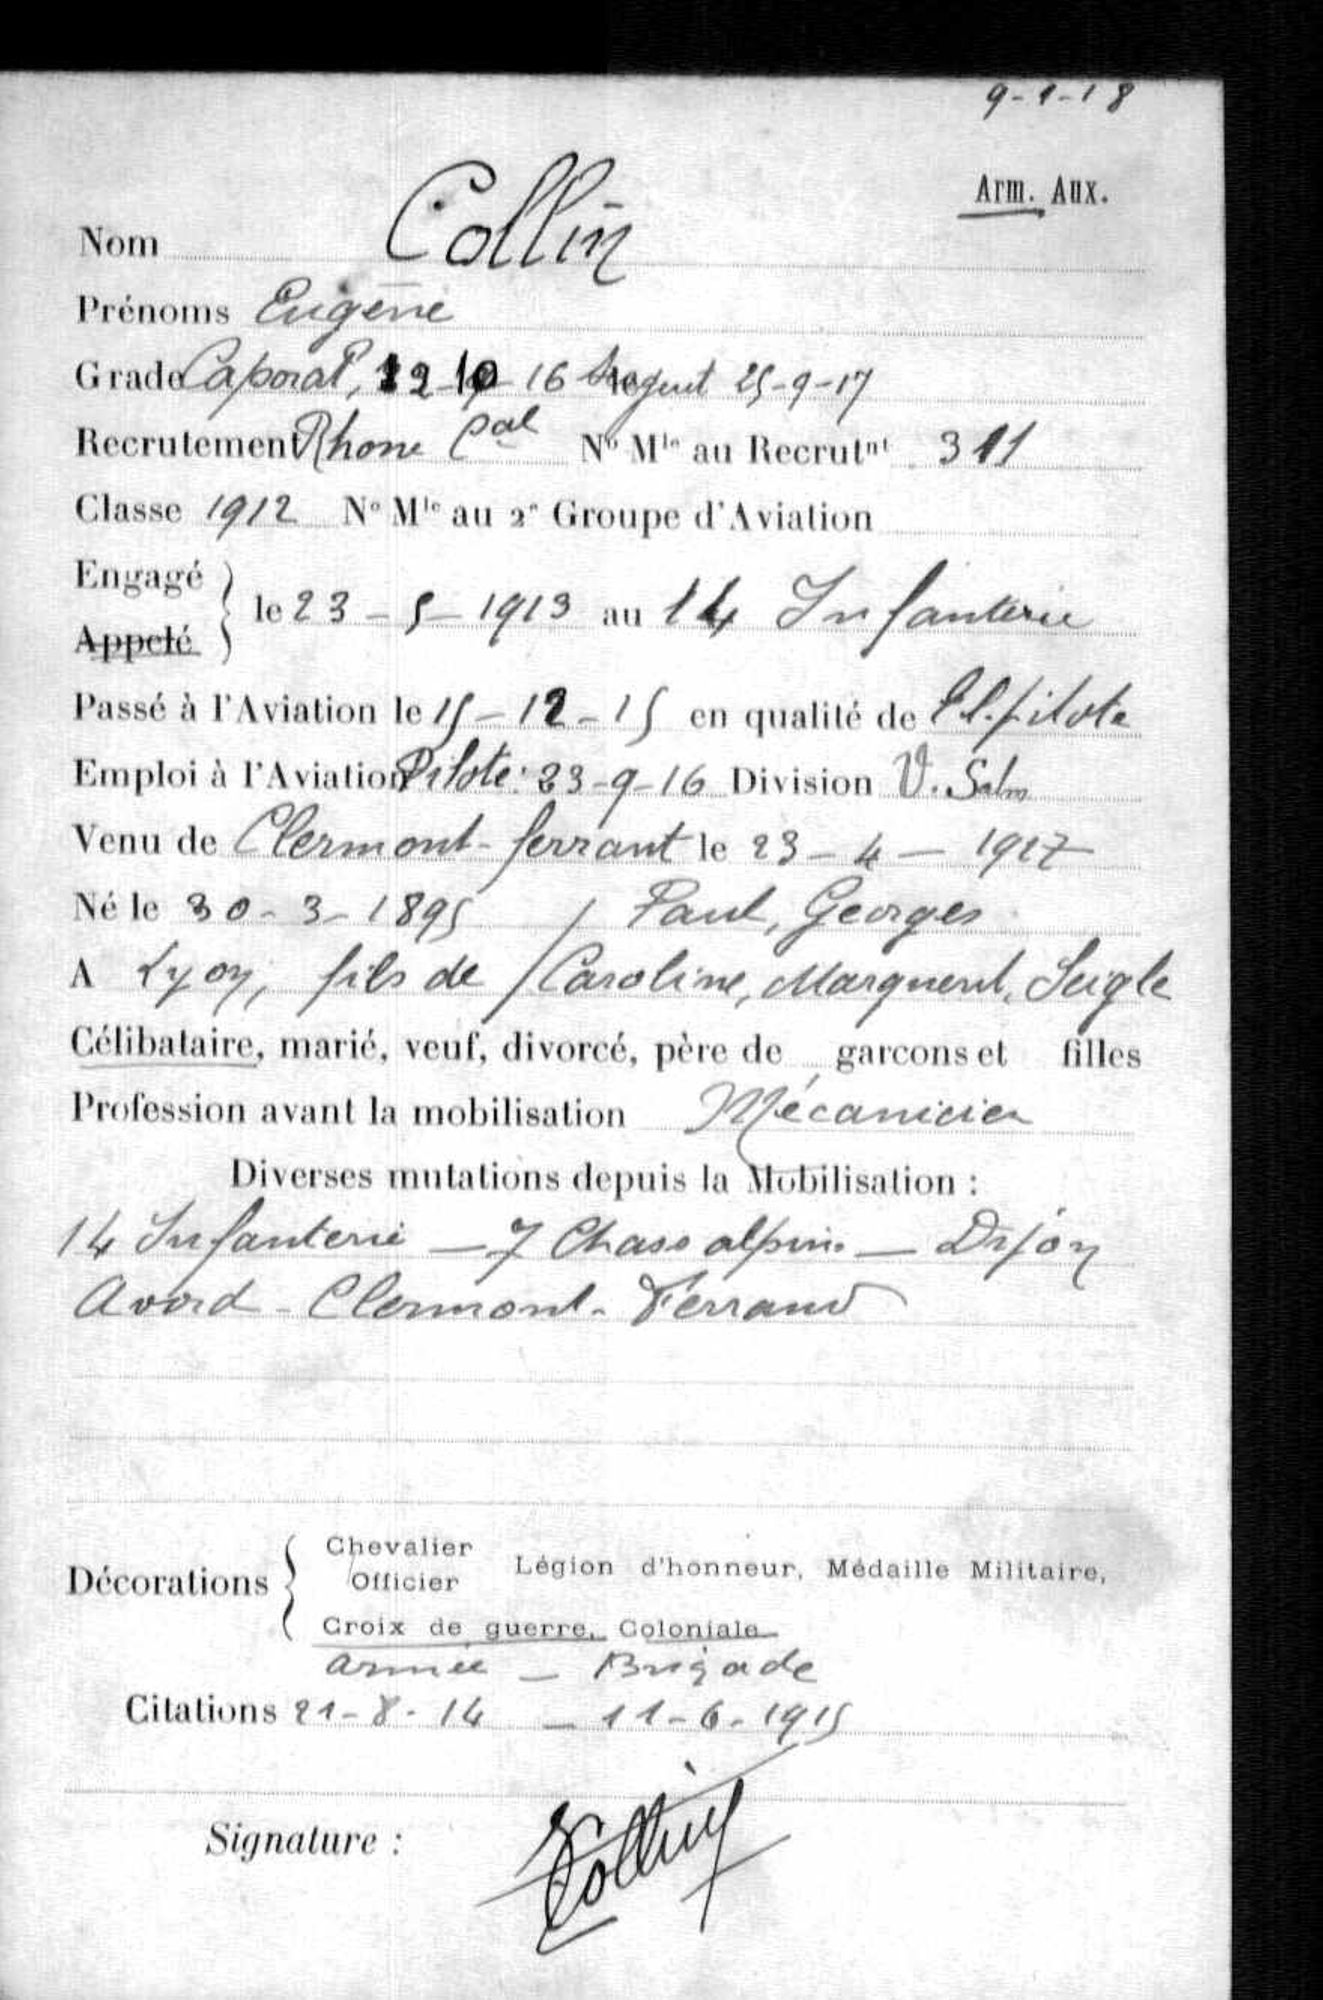 9-1-18
Arm. Aux.
Nom Collin
Prénoms Eugène
Grade Caporal, 12 10 16 Sergent 25-9-17
Recrutement Rhone Cal N° Mle au Recrutnt 311
Classe 1912 N° Mle au 2e Groupe d'Aviation
Engagé
le 23-5-1913 au 14 Infanterie
Appelé
Passé à l'Aviation le 15-12-15 en qualité de El. pilote
Emploi à l'Aviation Pilote: 23-9-16 Division
Venu de Clermont-ferrant le 23-4-1917
Né le 30-3-1895 / Paul, Georges
A Lyon, fils de / Caroline, Marguerit, Seigle
Célibataire, marié, veuf, divorcé, père de garcons et filles
Profession avant la mobilisation Mécanicien
Diverses mutations depuis la Mobilisation :
14 Infanterie - 7 Chass alpin. - Dijon
Avord - Clermont-Ferrand
Décorations Chevalier Officier Légion d'honneur, Médaille Militaire,
Croix de guerre, Coloniale
armée - Brigade
Citations 21-8-14 - 11-6-1915
Signature :
Collin